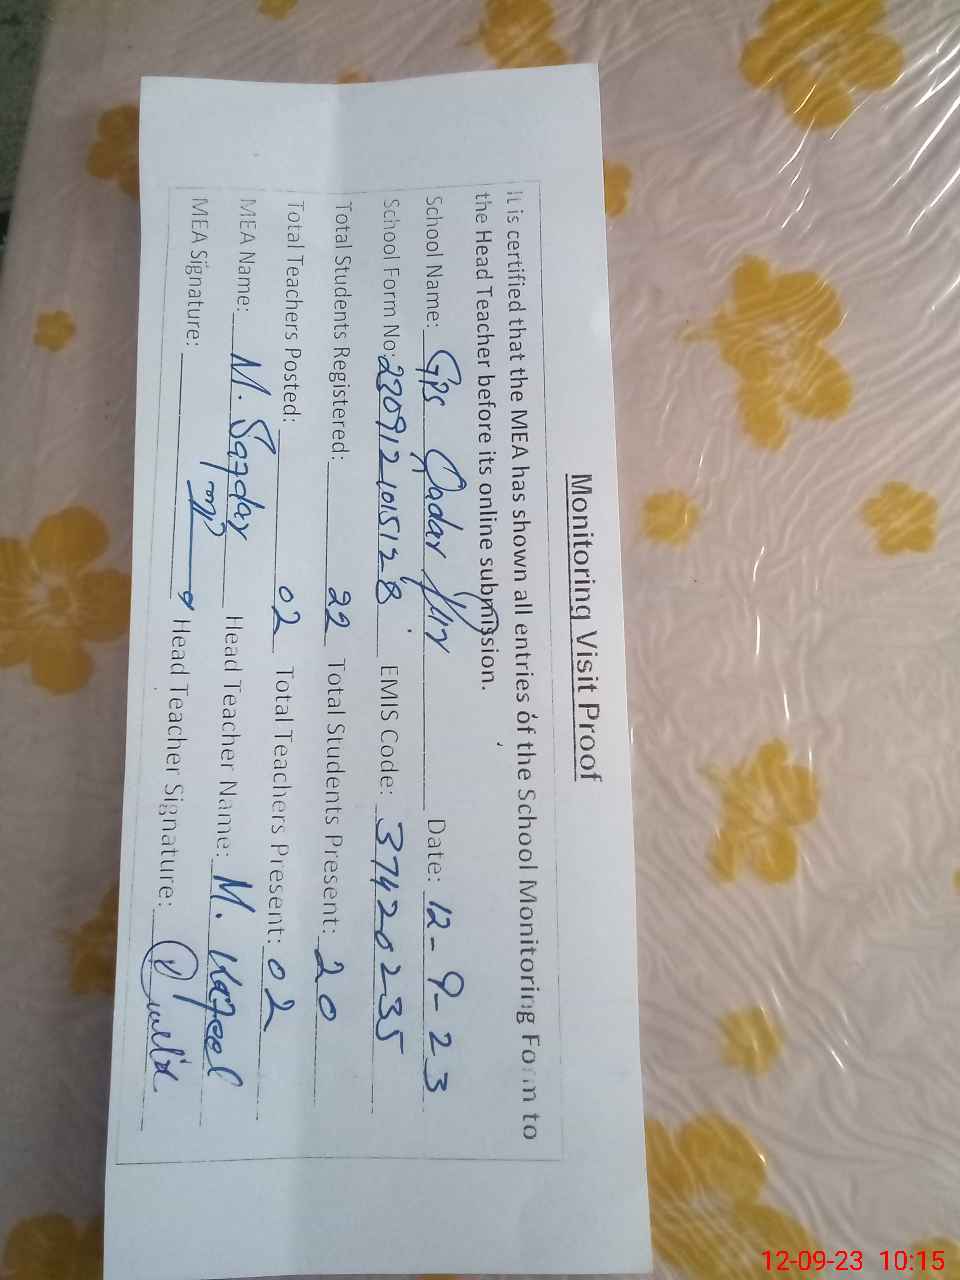 Monitoring Visit Proof
It is certified that the MEA has shown all entries of the School Monitoring Form to
the Head Teacher before its online submission.
School Name: GPS Qadar Pur Date: 12-9-23
School Form No: 2309121015128 EMIS Code: 37420235
Total Students Registered: 22 Total Students Present: 20
Total Teachers Posted: 02 Total Teachers Present: 02
MEA Name: M. Safdar Head Teacher Name: M.
MEA Signature: Head Teacher Signature:
12-09-23 10:15